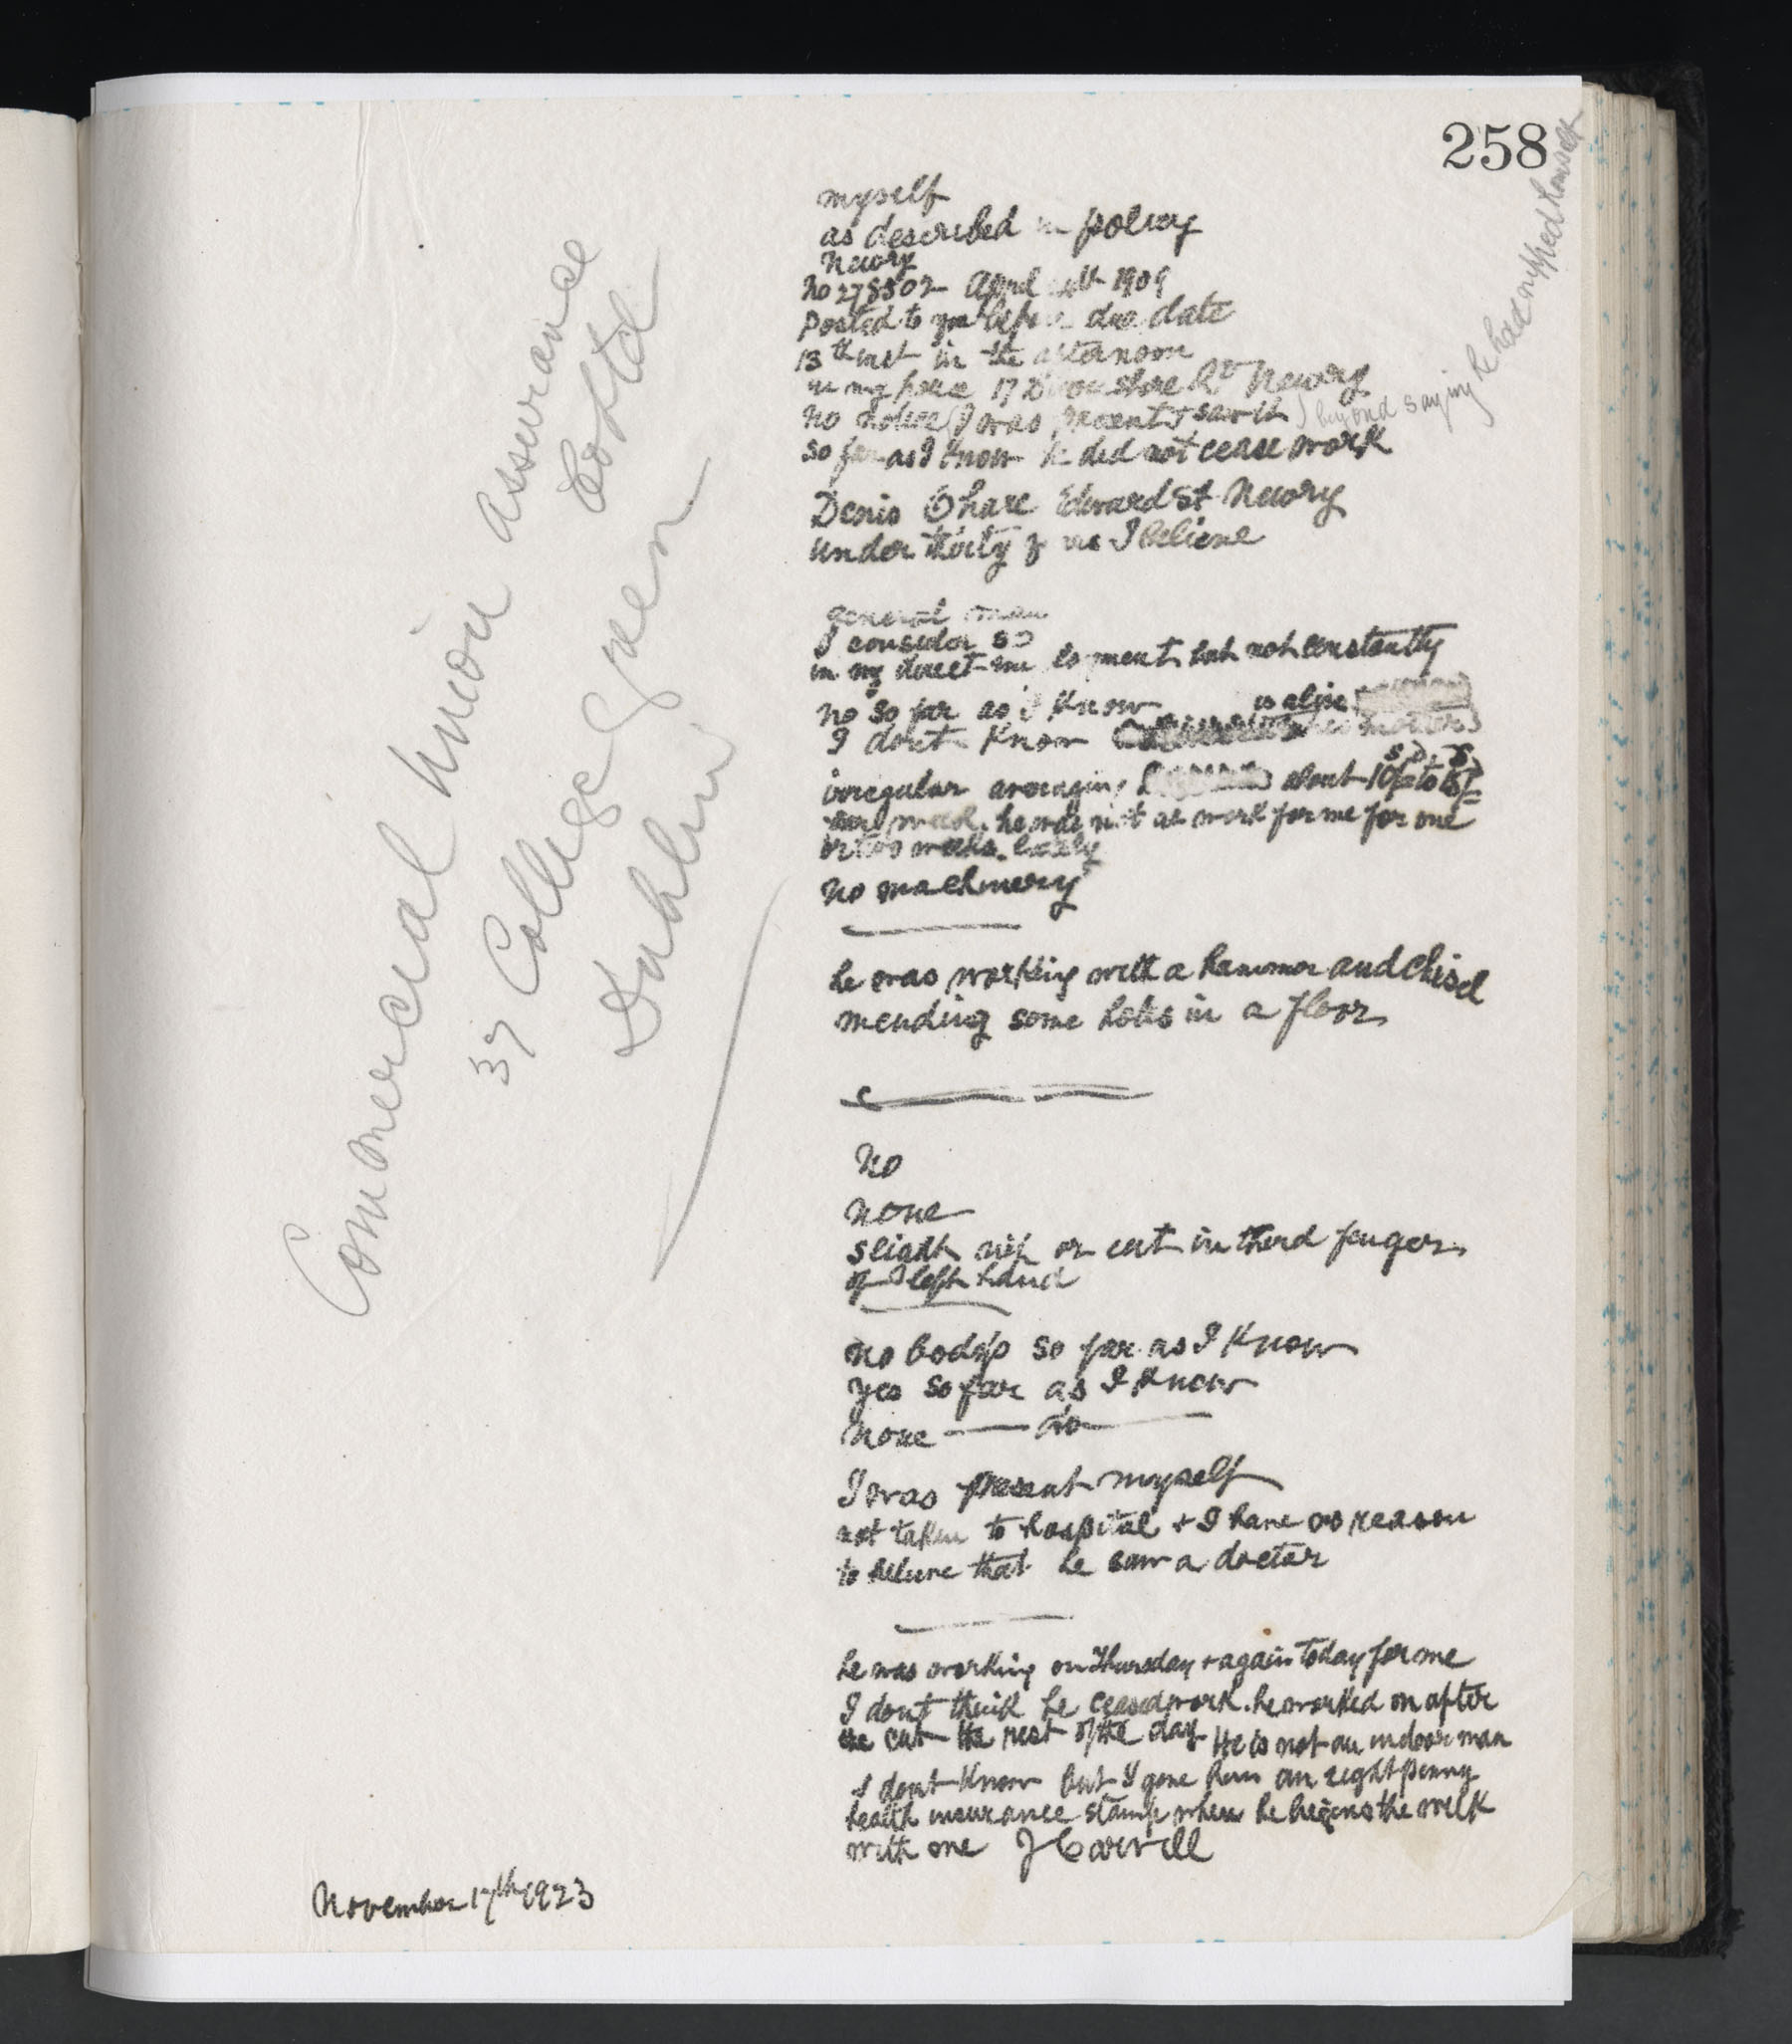 258
myself
as described in policy
Newry
No 278502 April 1909
Posted to you before due date
13th inst in the afternoon
in my house 17 Devonshire Rd Newry
no notice (I was present & saw it) beyond saying he had nipped himself
so far as I know he did not cease work
Denis Ohare Edward St Newry
under thirty I believe
general man
I consider so
in my direct but not constantly
no so far as I know is alive
I dont know his mother
irregular averaging about 10/= to
week. he was not at work for me for one
or two weeks lately
no machinery
he was working with a hammer and chisel
mending some holes in a floor
no
none
slight nip or cut in third finger
of left hand
no bodys so far as I know
yes so far as I know
none — do —
I was present myself
not taken to hospital + I have no reason
to believe that he saw a doctor
he was working on Thursday + again today for me
I dont think he ceased work. he worked on after
the cut the rest of the day He is not an indoor man
I dont know but I gave him an eight penny
health insurance stamp when he begins the week
with me J Carvill
Commercial Union Assurance
Co Ltd
37 College Green
Dublin
November 17th 1923